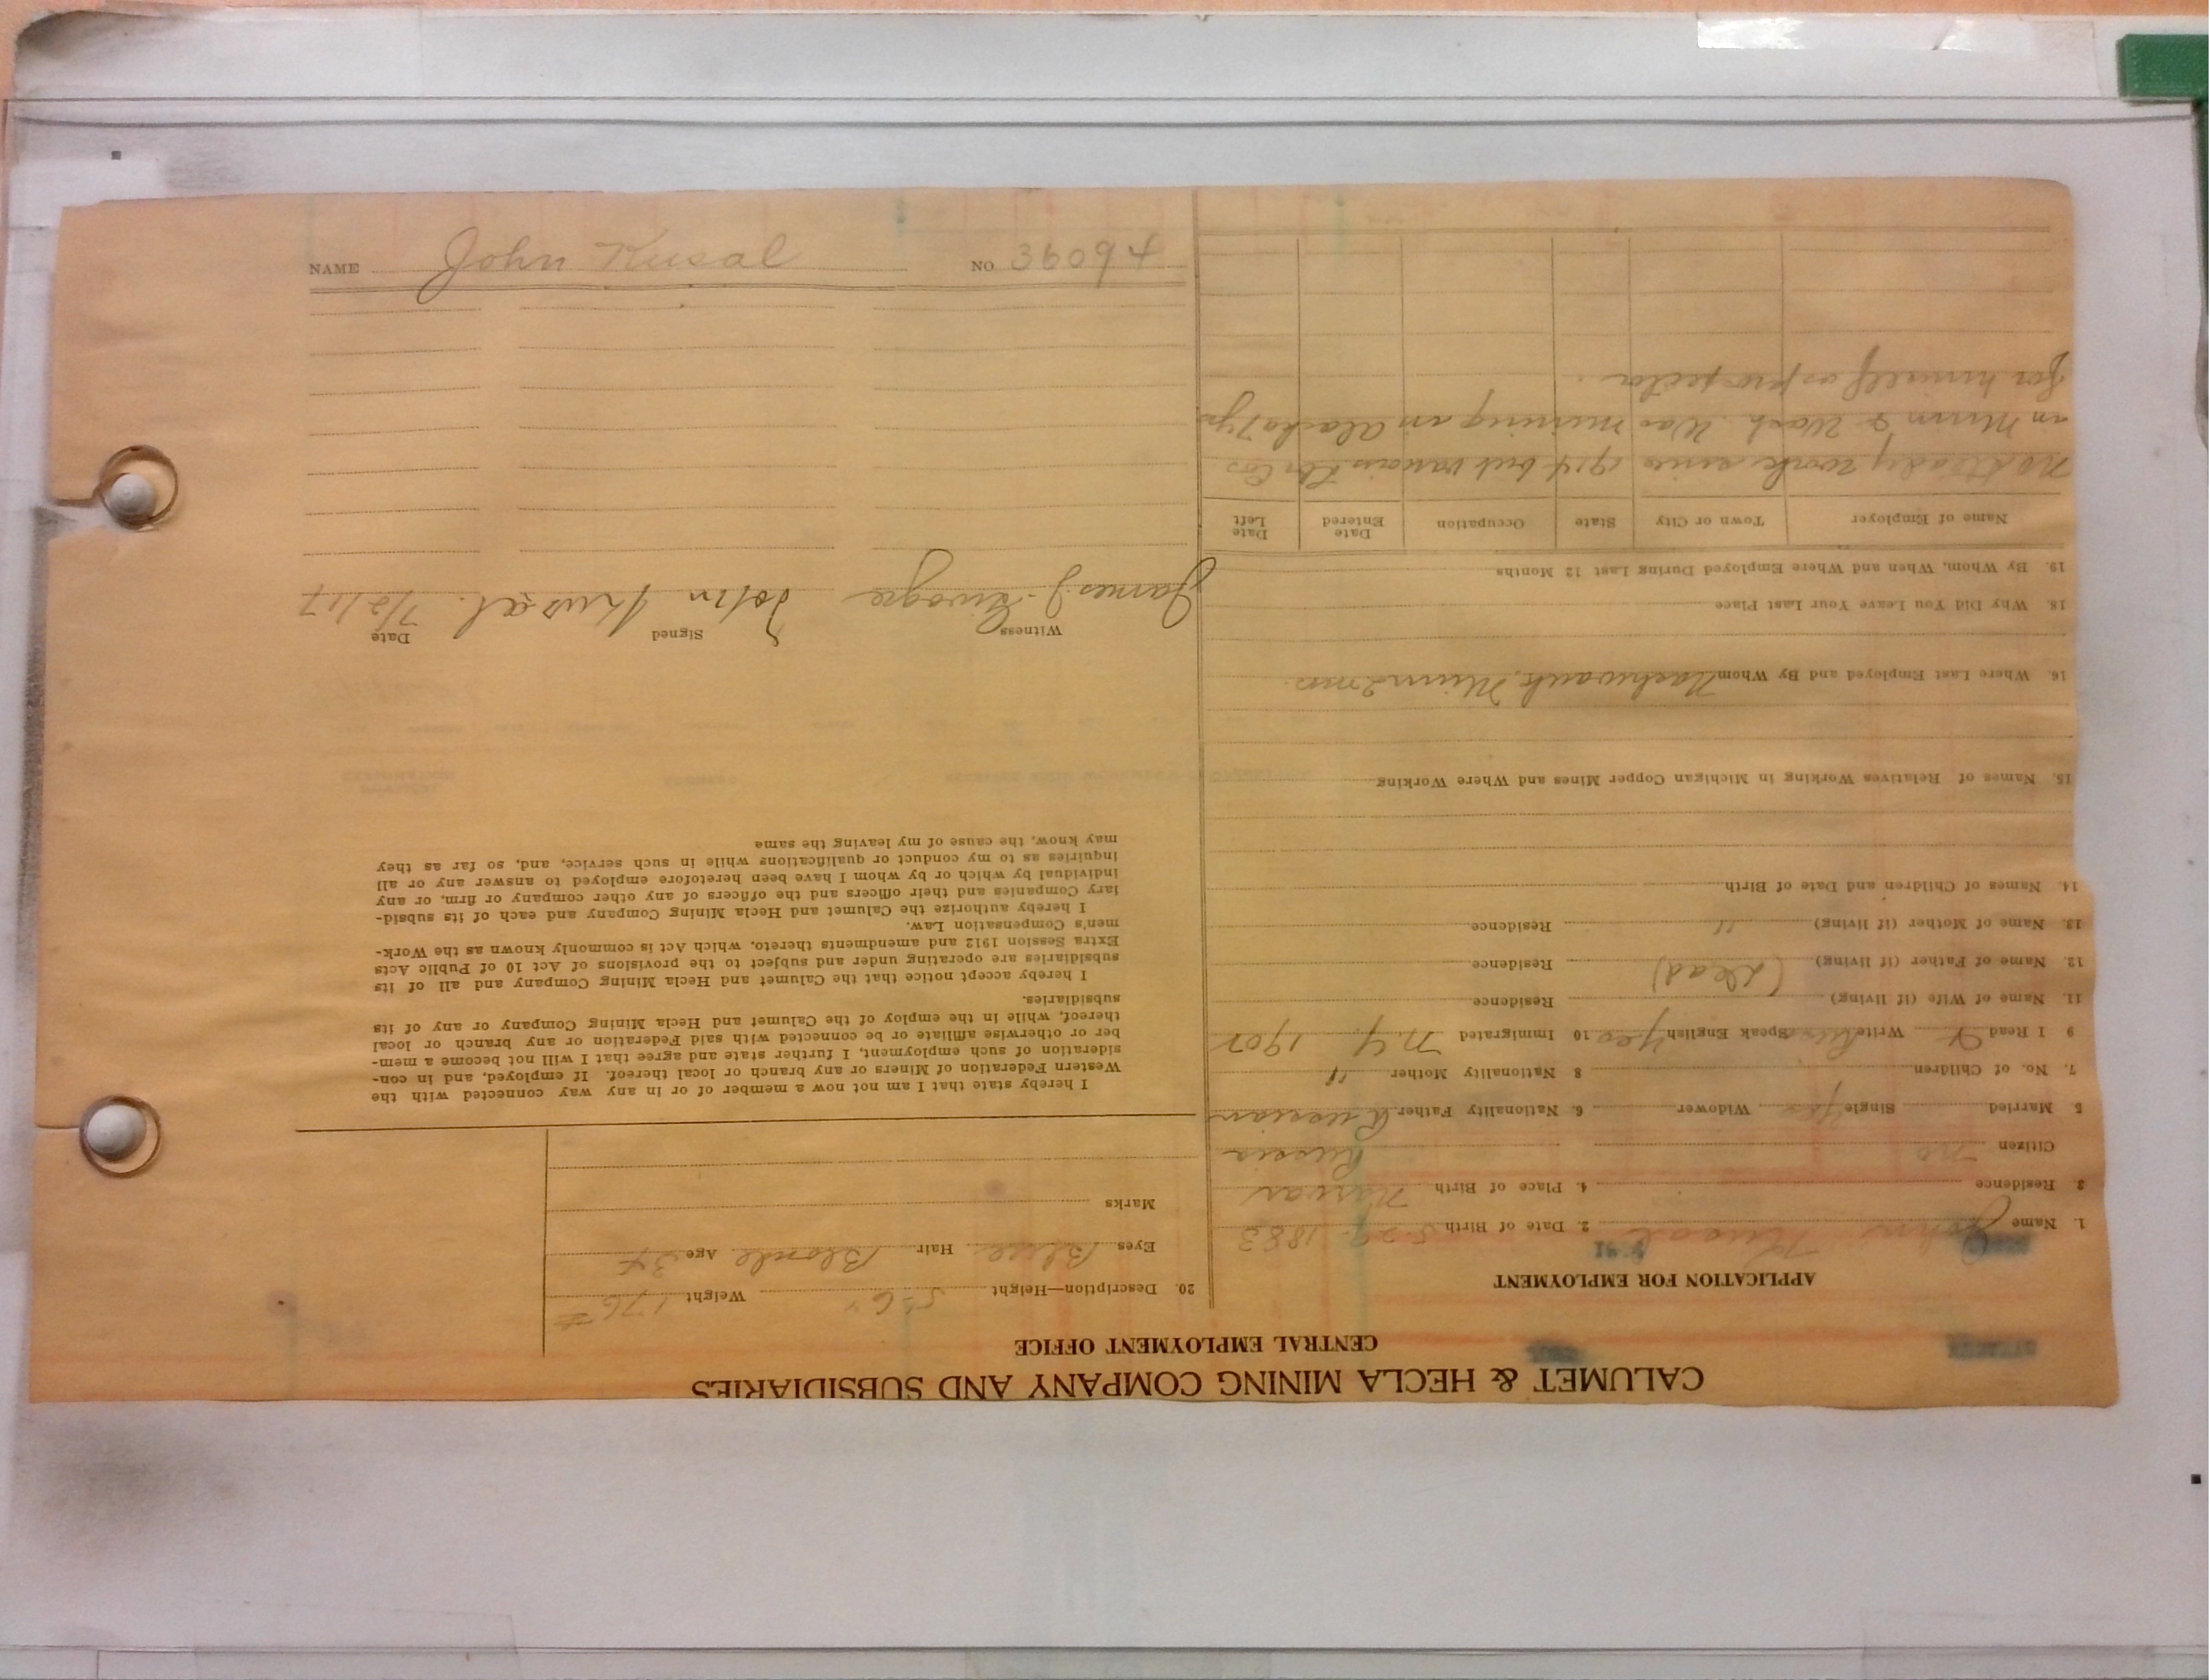 CALUMET & HECLA MINING COMPANY AND SUBSIDIARIES
CENTRAL EMPLOYMENT OFFICE
APPLICATION FOR EMPLOYMENT
1. Name John Kusal 2. Date of Birth 5-29-1883
3. Residence 4. Place of Birth
Citizen no Russia
5 Married Single yes Widower 6. Nationality Father Russian
7. No. of Children 8 Nationality Mother "
9 I Read Write Speak English yes 10 Immigrated N.Y.
11. Name of Wife (if living) Residence
12. Name of Father (if living) (Dead) Residence
13. Name of Mother (if living) " Residence
14. Names of Children and Date of Birth
15. Names of Relatives Working in Michigan Copper Mines and Where Working
16. Where Last Employed and By Whom Nashwauk, Minn 2 mos
18. Why Did You Leave Your Last Place
19. By Whom, When and Where Employed During Last 12 Months
Name of Employer Town or City State Occupation Date Entered Date Left
No steady work since 1914 but various Cos
in Minn & Wash. Was mining in Alaska 7 yrs
for himself as prospector.
20. Description—Height 5-6" Weight 176 #
Eyes Blue Hair Blonde Age 34
Marks
I hereby state that I am not now a member of or in any way connected with the
Western Federation of Miners or any branch or local thereof. If employed, and in con-
sideration of such employment, I further state and agree that I will not become a mem-
ber or otherwise affiliate or be connected with said Federation or any branch or local
thereof, while in the employ of the Calumet and Hecla Mining Company or any of its
subsidiaries.
I hereby accept notice that the Calumet and Hecla Mining Company and all of its
subsidiaries are operating under and subject to the provisions of Act 10 of Public Acts
Extra Session 1912 and amendments thereto, which Act is commonly known as the Work-
men's Compensation Law.
I hereby authorize the Calumet and Hecla Mining Company and each of its subsid-
iary Companies and their officers and the officers of any other company or firm, or any
individual by which or by whom I have been heretofore employed to answer any or all
inquiries as to my conduct or qualifications while in such service, and, so far as they
may know, the cause of my leaving the same
Witness Signed Date
James J. John Kusal. 7/2/17
NAME John Kusal NO 36094